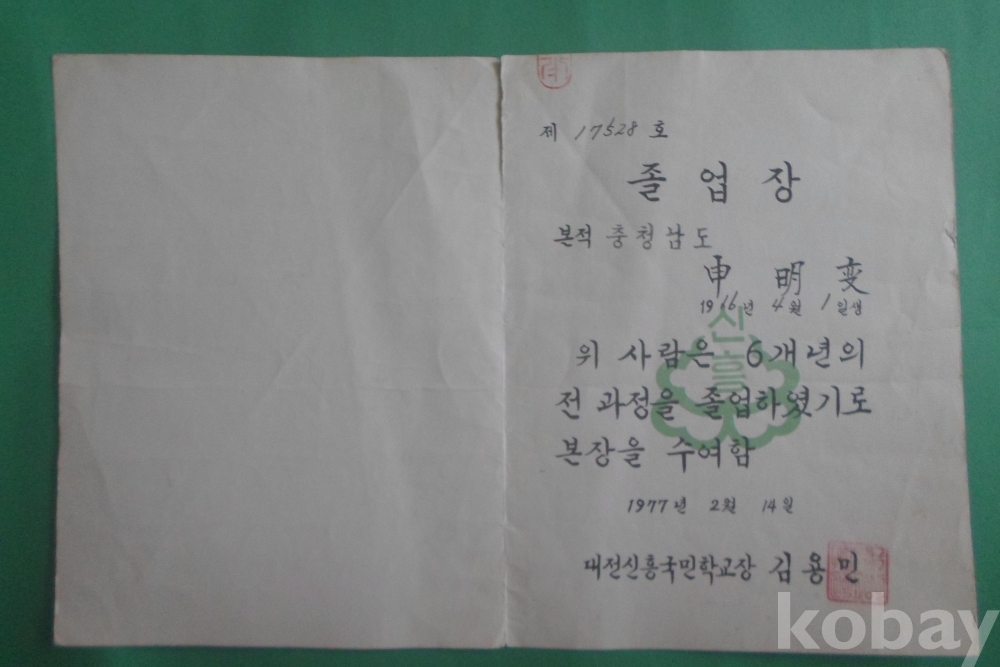 제 17528 호
졸업장
본적 충청남도
申 明 変
1966년 4월 1일생
신흥
위 사람은 6개년의
전 과정을 졸업하였기로
본장을 수여함
1977년 2월 14일
대전신흥국민학교장 김용민
kobay